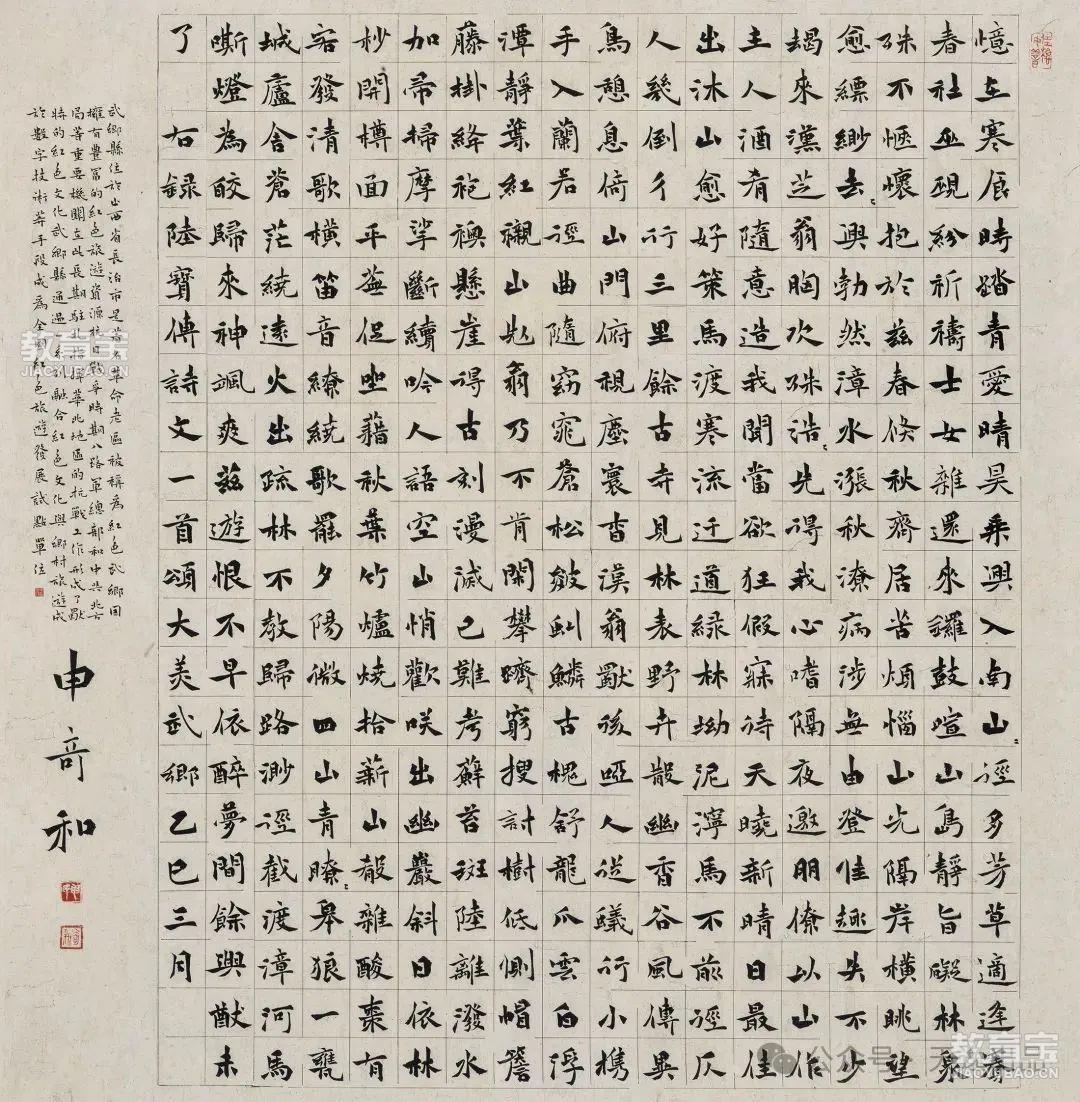 憶在寒辰時踏青愛晴昊乘興入南山々徑多芳草適逢春
春社巫覡紛祈禱士女雜還來鑼鼓喧山鳥靜旨礙林泉
殊不愜懷抱於茲春候秋齊居苦煩惱山光隔岸橫眺望
愈縹緲去々興勃然漳水漲秋潦病涉無由登佳趣失不少
朅來漢芝翁胸次殊浩々先得我心嗜隔夜邀朋僚以山作
主人酒肴隨意造我聞當欲狂假寐待天曉新晴日最佳
出沐山愈好策馬渡寒流迂道綠林坳泥濘馬不前徑仄
人幾倒彳行三里餘古寺見林表野卉散幽香谷風傳異
鳥憩息倚山門俯視塵寰杳漠翁獻孩啞人從蟻行小攜
手入蘭若徑曲隨窈窕蒼松皴虯鱗古槐舒龍爪雲白浮
潭靜葉紅襯山翁乃不肯閑攀躋窮搜討樹低惻帽簷
藤掛絳袍襖懸崖得古刻漫滅已難考蘚苔斑陸離潑水
加帚掃摩挲斷續吟人語空山悄歡咲出幽巖斜日依林
杪開樽面平蕪促坐藉秋葉竹爐燒拾薪山殽雜酸棗有
客發清歌橫笛音繚繞歌罷夕陽微四山青瞭々舉狼一甕
城廬舍蒼茫繞遠火出疏林不教歸路渺徑截渡漳河馬
嘶燈為皎歸來神颯爽茲遊恨不早依醉夢間餘興猷未
了 右錄陸寶傅詩文一首頌大美武鄉乙巳三月
武鄉縣位於山西省長治市是著名革命老區被稱為紅色武鄉因
擁有豐富的紅色旅遊資源抗日戰爭時期八路軍總部和中共北方
局等重要機關在此長期駐扎指揮華北地區的抗戰工作形成了獨
特的紅色文化武鄉縣通過一系列融合紅色文化與鄉村旅遊成
於數字技術等手段成為全國紅色旅遊發展試點單位
申奇和
教育宝
JIAOYUBAO.CN
公众号
教育宝
JIAOYUBAO.CN